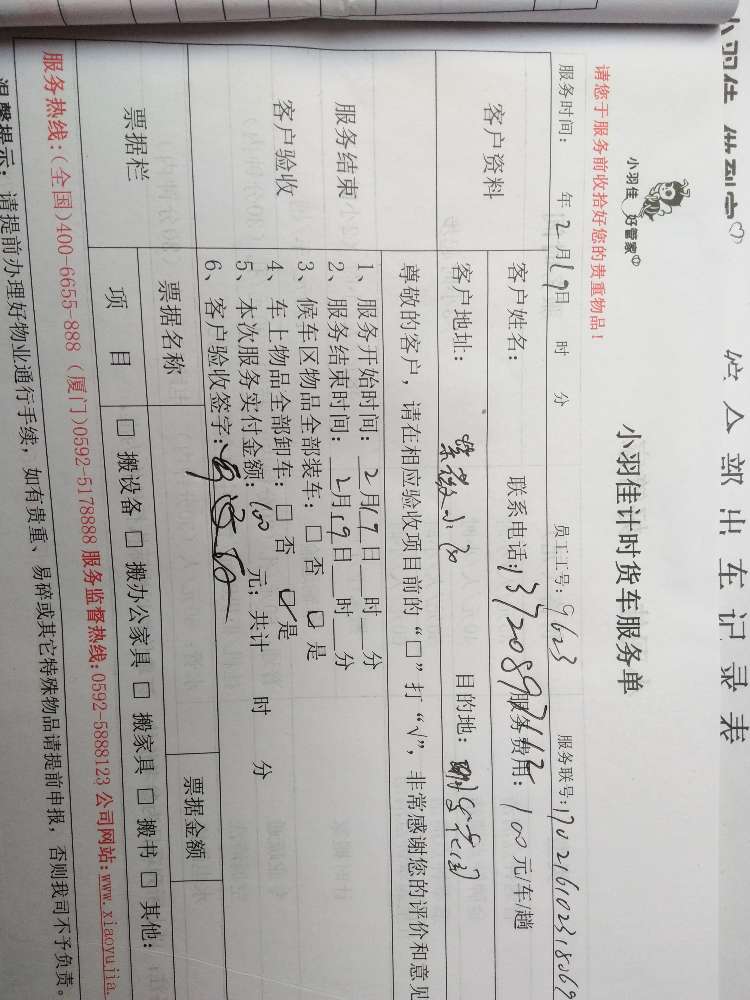 小羽佳
出车记录表
小羽佳 好管家
小羽佳计时货车服务单
请您于服务前收拾好您的贵重物品！
服务时间： 年 2月19日 时 分 员工工号：9623 服务联号：170216102318069
客户资料
客户姓名： 联系电话： 服务费用：100元/车/趟
客户地址： 目的地：
尊敬的客户，请在相应验收项目前的“□”打“√”，非常感谢您的评价和意见
服务结束
客户验收
1、服务开始时间：2月19日 时 分
2、服务结束时间：2月19日 时 分
3、候车区物品全部装车：□ 否 ☑ 是
4、车上物品全部卸车：□ 否 ☑ 是
5、本次服务实付金额：100 元；共计 时 分
6、客户验收签字：
票据栏
票据名称 票据金额
项 目 □ 搬设备 □ 搬办公家具 □ 搬家具 □ 搬书 □ 其他：
服务热线：(全国)400-6655-888 (厦门)0592-5178888 服务监督热线：0592-5888123 公司网站：www.xiaoyujia.
温馨提示：请提前办理好物业通行手续，如有贵重、易碎或其它特殊物品请提前申报，否则我司不予负责。